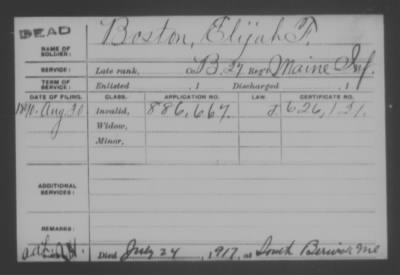 DEAD
Boston, Elijah F.
NAME OF SOLDIER:
SERVICE: Late rank, Co. B. 27 Reg't Maine Inf.
TERM OF SERVICE: Enlisted , 1 Discharged , 1
DATE OF FILING. CLASS. APPLICATION NO. LAW. CERTIFICATE NO.
1890. Aug 30 Invalid, 886,667. 626,121.
Widow,
Minor,
ADDITIONAL SERVICES:
REMARKS:
Died July 24, 1917, at South Berwick Me